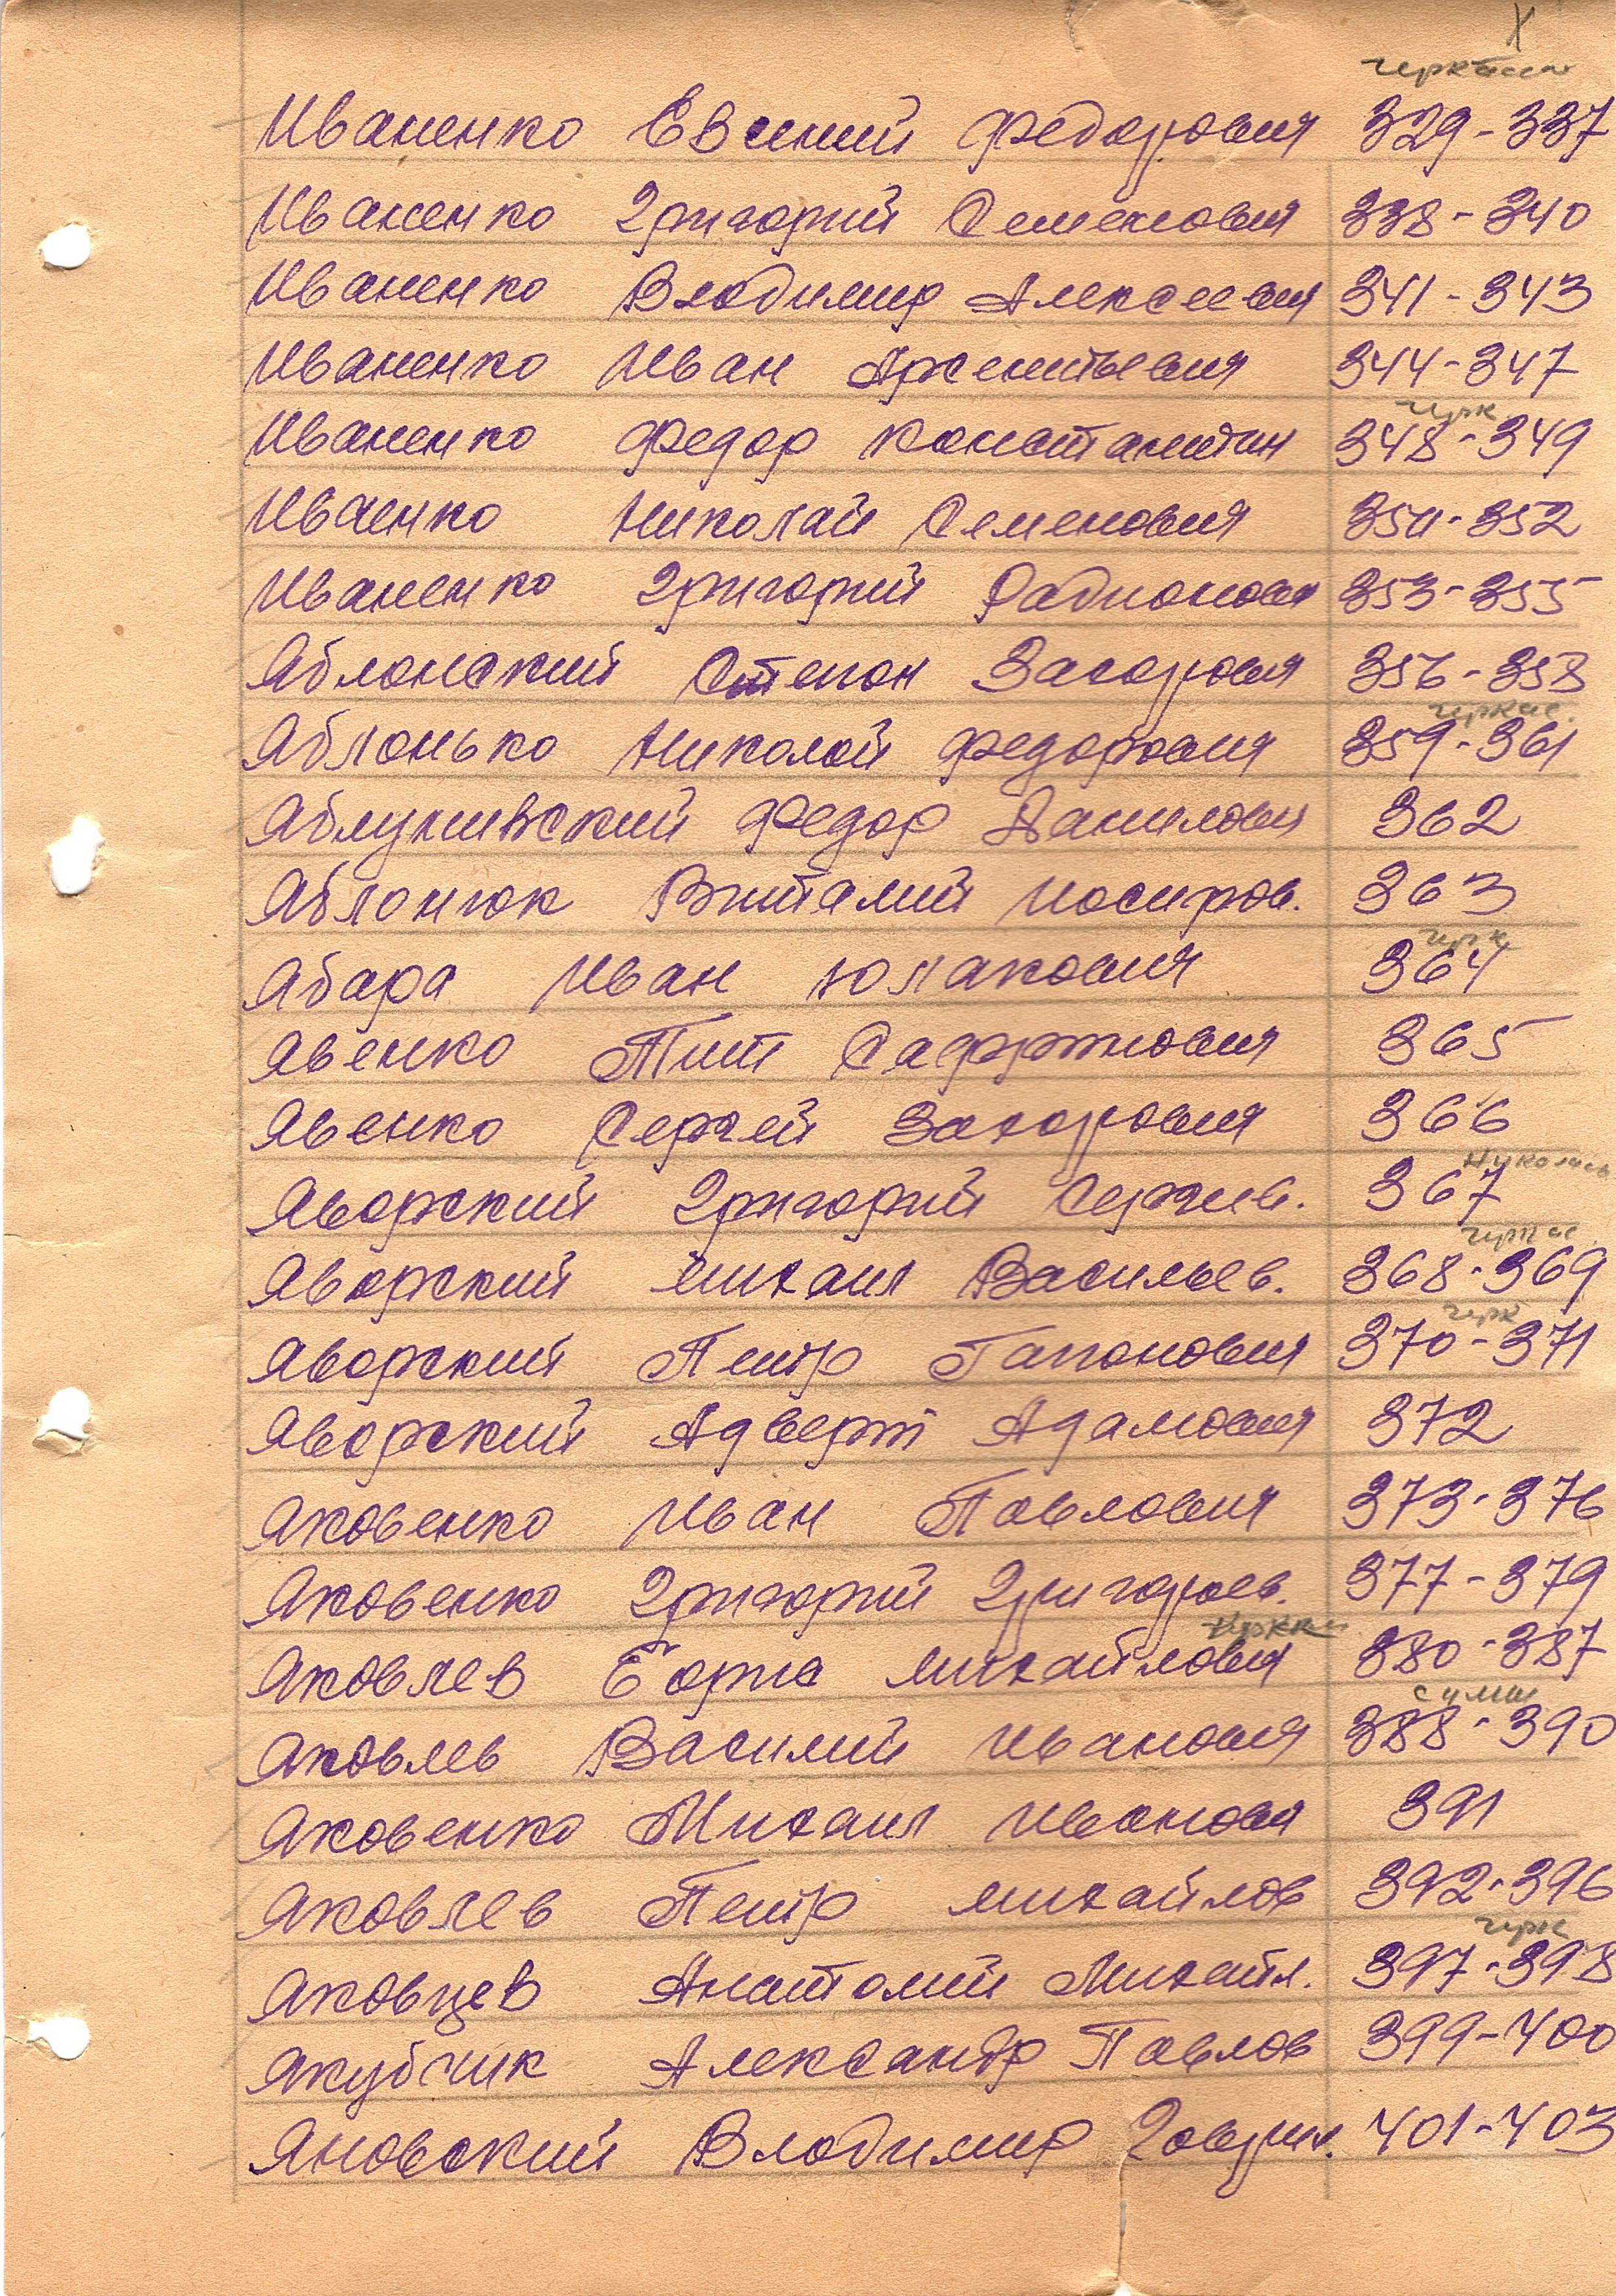 Х
черкассы
Иваненко Евгений Федорович 329-337
Иваненко Григорий Семенович 338-340
Иваненко Владимир Алексеевич 341-343
Иваненко Иван Арсентьевич 344-347
черк
Иваненко Федор Константин 348-349
Иваенко Николай Семенович 350-352
Иваненко Григорий Радионович 353-355
Яблонский Степан Захарович 356-358
черкас.
Яблонько Николай Федорович 359-361
Федор Данилович 362
Яблонюк Виталий Иосифов. 363
черк
Ябара Иван 364
Явенко Тит 365
Явенко Сергей Захарович 366
Николаев
Яворский Григорий Сергеев. 367
черкас.
Яворский Михаил Васильев. 368-369
черк
Яворский Петр Гапонович 370-371
Яворский Адверт Адамович 372
Яковенко Иван Павлович 373-376
Яковенко Григорий Григорьев. 377-379
Яковлев Михайлович 380-387
сумы
Яковлев Василий Иванович 388-390
Яковенко Михаил Иванович 391
Яковлев Петр Михайлов 392-396
черк
Яковцев Анатолий Михайл. 397-398
Якубчик Александр Павлов 399-400
Яновский Владимир 401-403